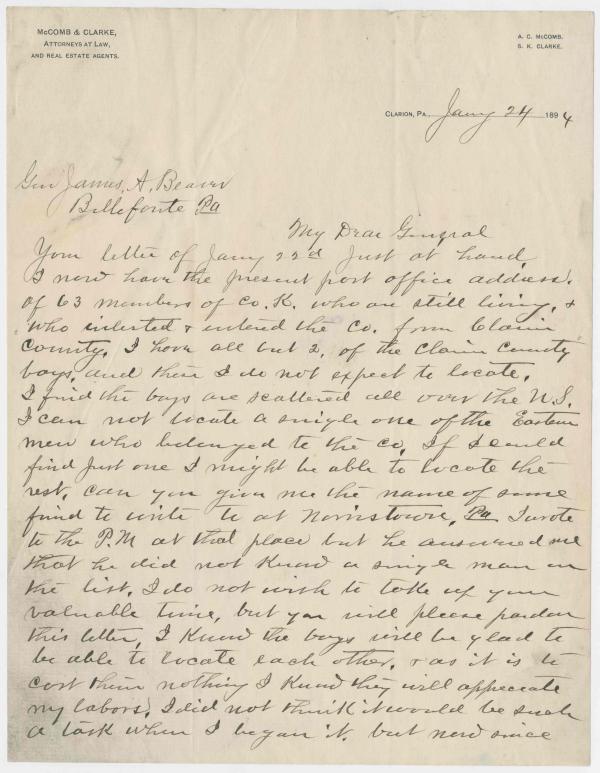 McCOMB & CLARKE,
ATTORNEYS AT LAW,
AND REAL ESTATE AGENTS.
A. C. McCOMB.
S. K. CLARKE.
CLARION, PA. Jany 24 1894
Gen James. A. Beaver
Bellefonte Pa
My Dear General
Your letter of Jany 22d Just at hand,
I now have the present post office address.
of 63 members of Co. K. who are still living, &
who inlisted & entered the Co. from Clarion
County. I have all but 2, of the Clarion County
boys, and them I do not expect to locate,
I find the boys are scattered all over the U.S.
I can not locate a single one of the Eastern
men who belonged to the Co, If I could
find Just one I might be able to locate the
rest. can you give me the name of some
to write to at Norristown, Pa I wrote
to the P.M at that place but he answered me
that he did not Know a single man on
the list. I do not wish to take up your
valuable time, but you will please pardon
this letter, I Know the boys will be glad to
be able to locate each other, & as it is to
cost them nothing I Know they will appreciate
my labors. I did not think it would be such
a task when I began it. but now since